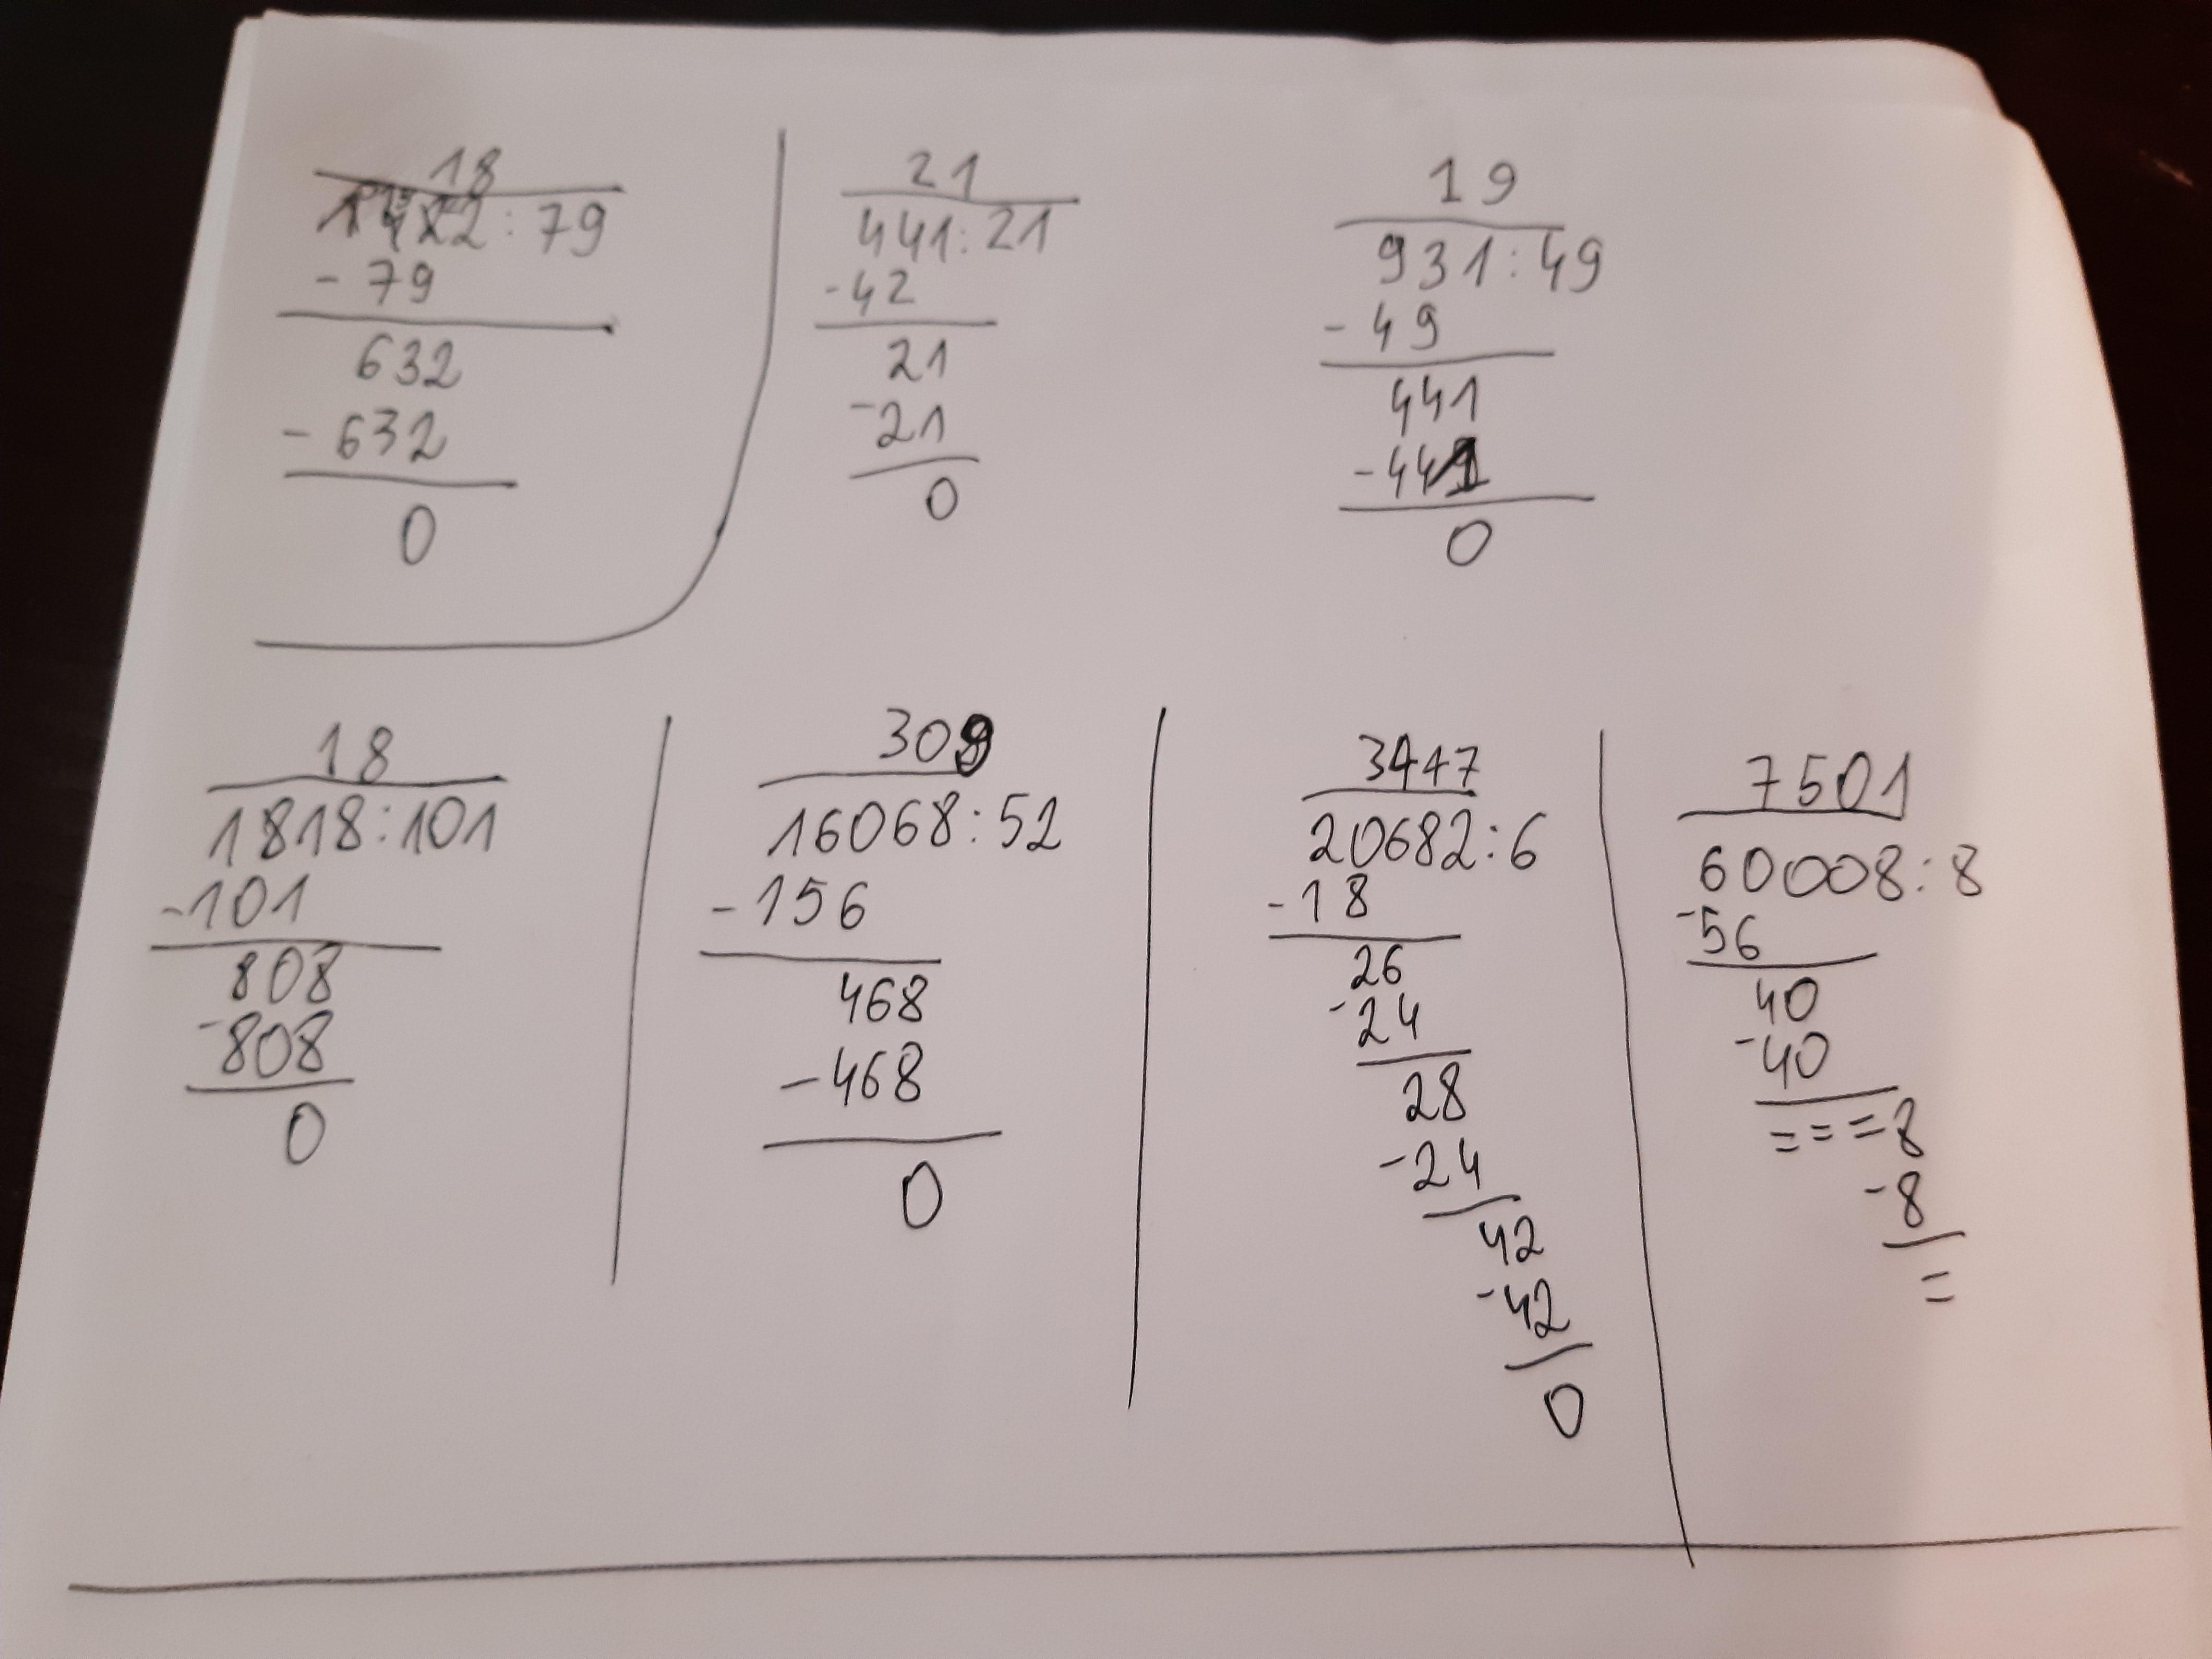 18
1422:79
- 79
632
- 632
0
21
441:21
-42
21
-21
0
19
931:49
- 49
441
-441
0
18
1818:101
-101
808
-808
0
309
16068:52
- 156
468
-468
0
3447
20682:6
- 18
26
-24
28
-24
42
-42
0
7501
60008:8
-56
40
-40
===8
-8
=